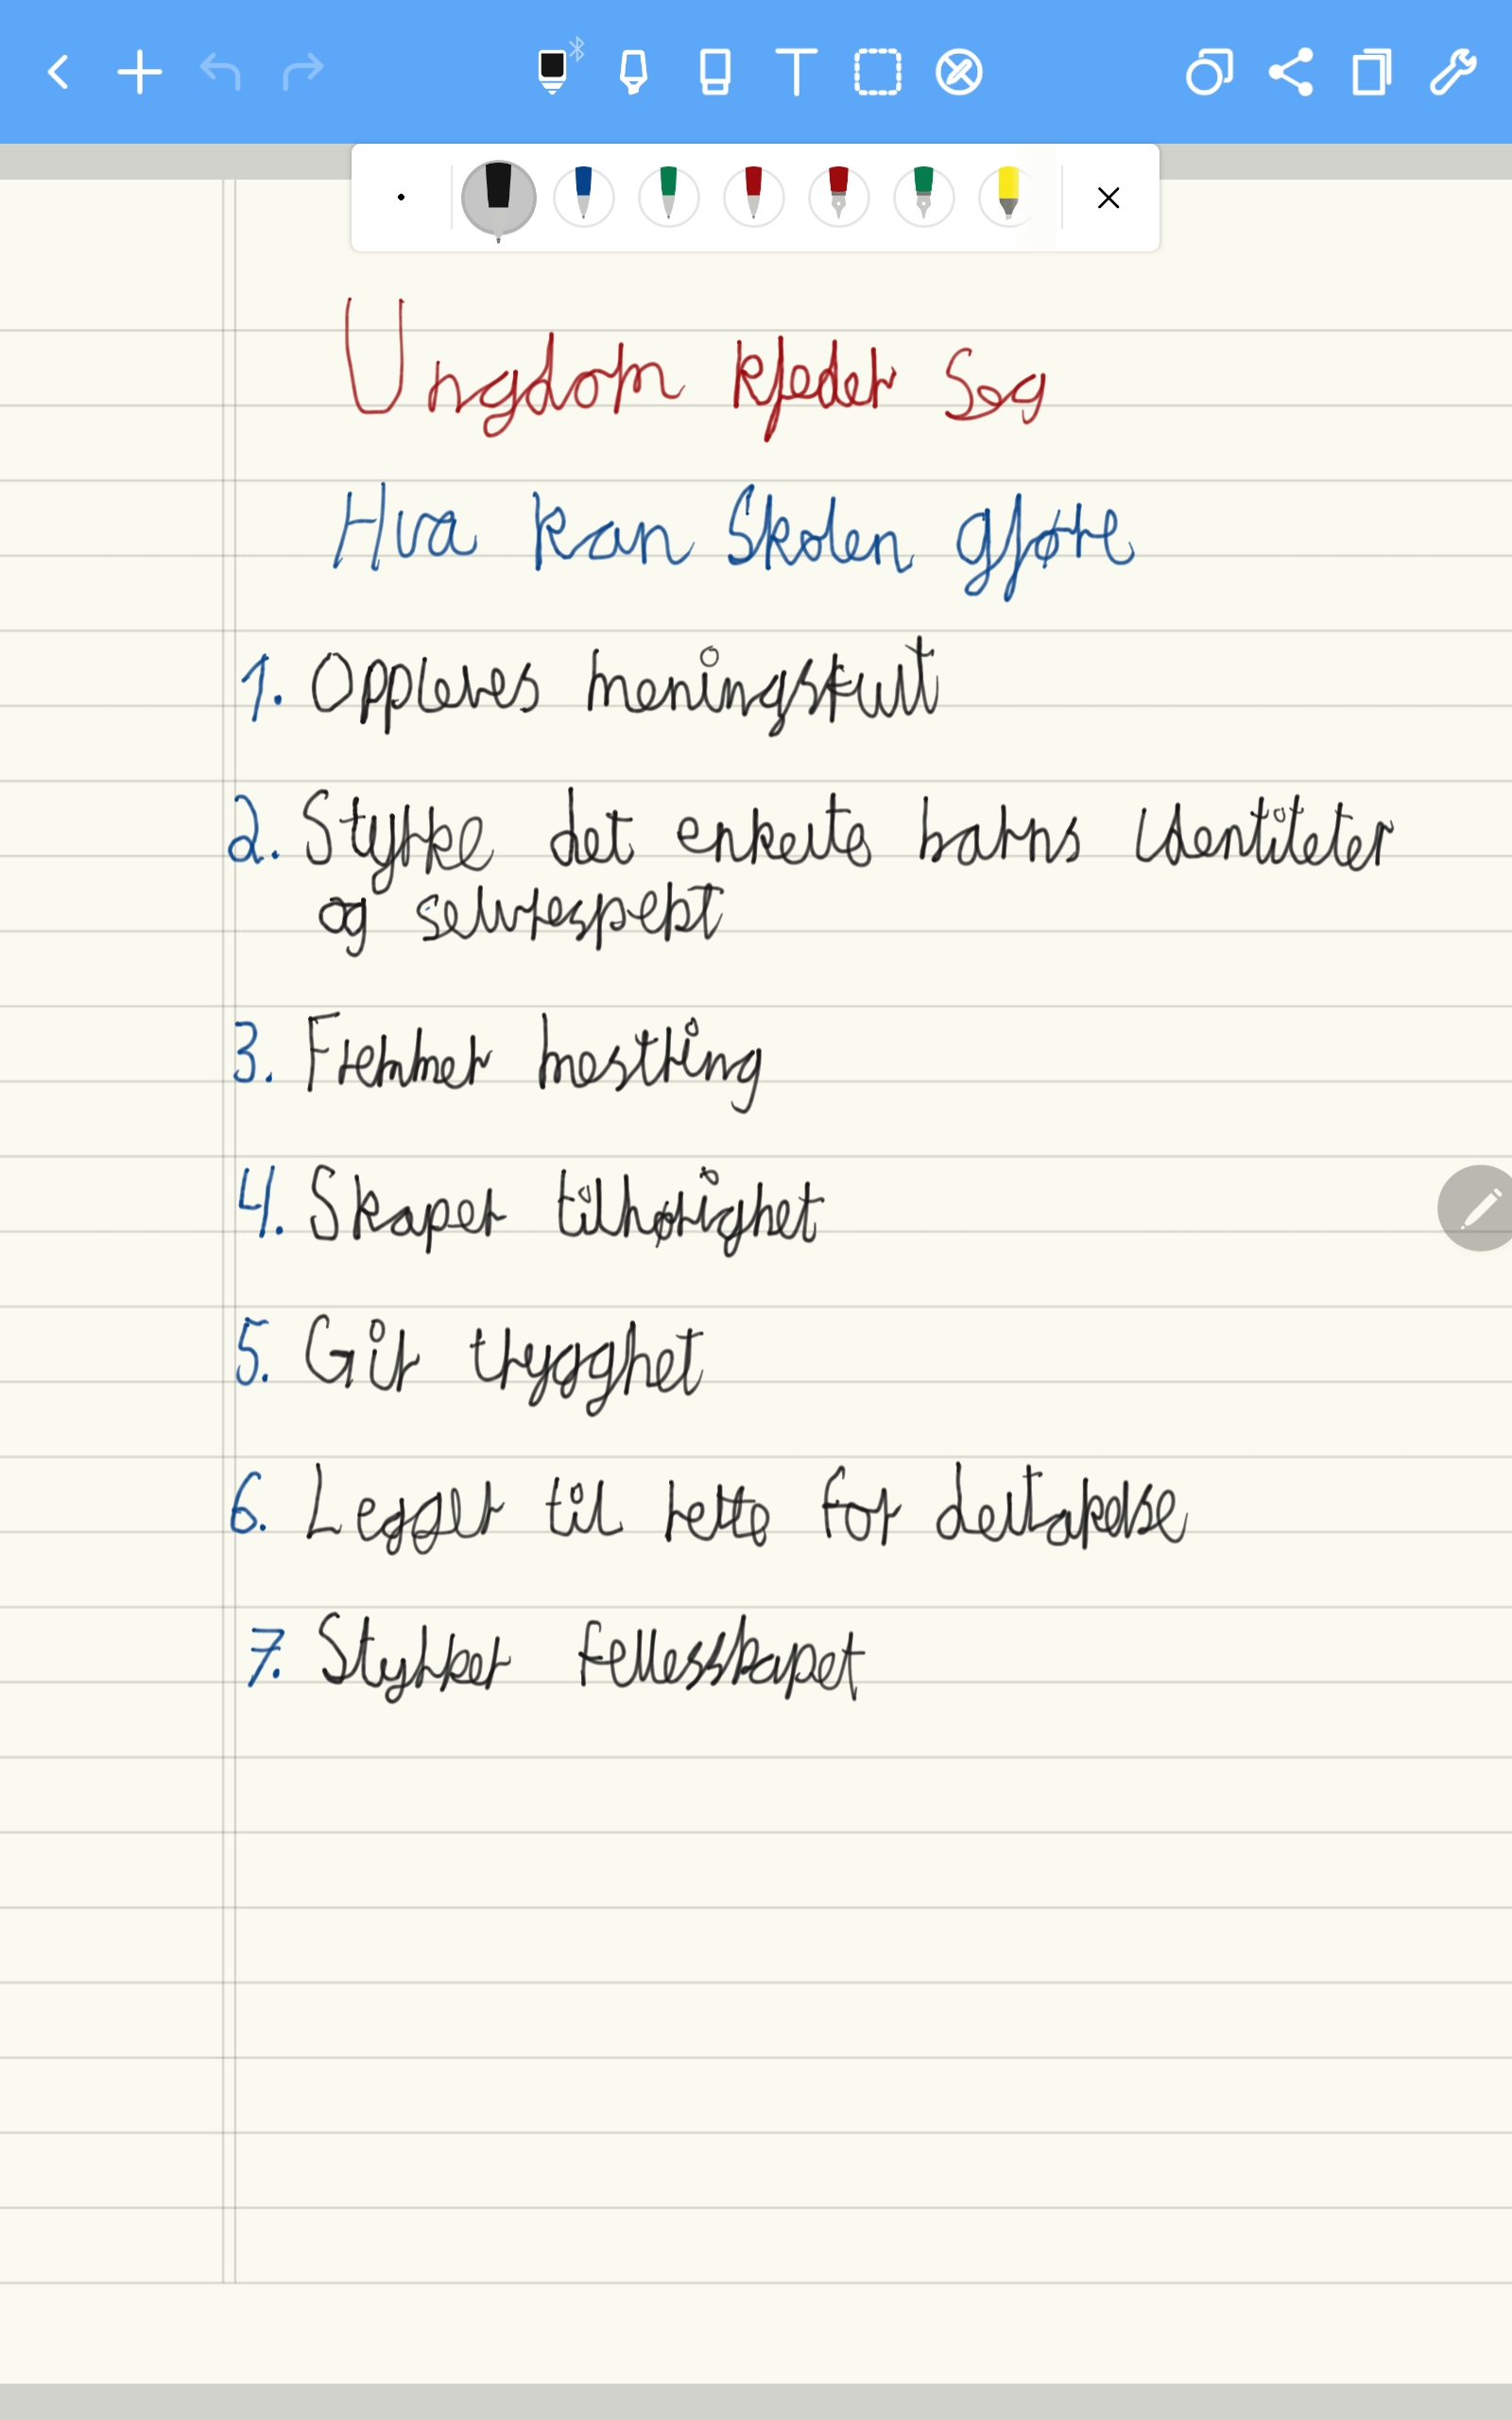 Ungdom kjeder Seg
Hva kan Skolen gjøre
1. Oppleves meningsfullt
2. Styrke det enkelte barns identitet
og selvrespekt
3. Fremmer mestring
4. Skaper tilhørighet
5. Gir trygghet
6. Legger til rette for deltakelse
7. Styrker fellesskapet